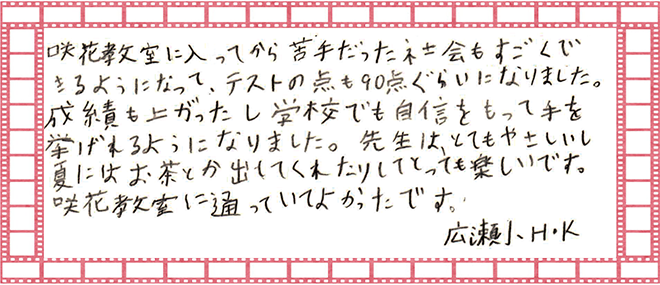 咲花教室に入ってから苦手だった社会もすごくで
きるようになって、テストの点も90点ぐらいになりました。
成績も上がったし学校でも自信をもって手を
挙げれるようになりました。先生は、とてもやさしいし
夏にはお茶とか出してくれたりしてとっても楽しいです。
咲花教室に通っていてよかったです。
広瀬小、H・K